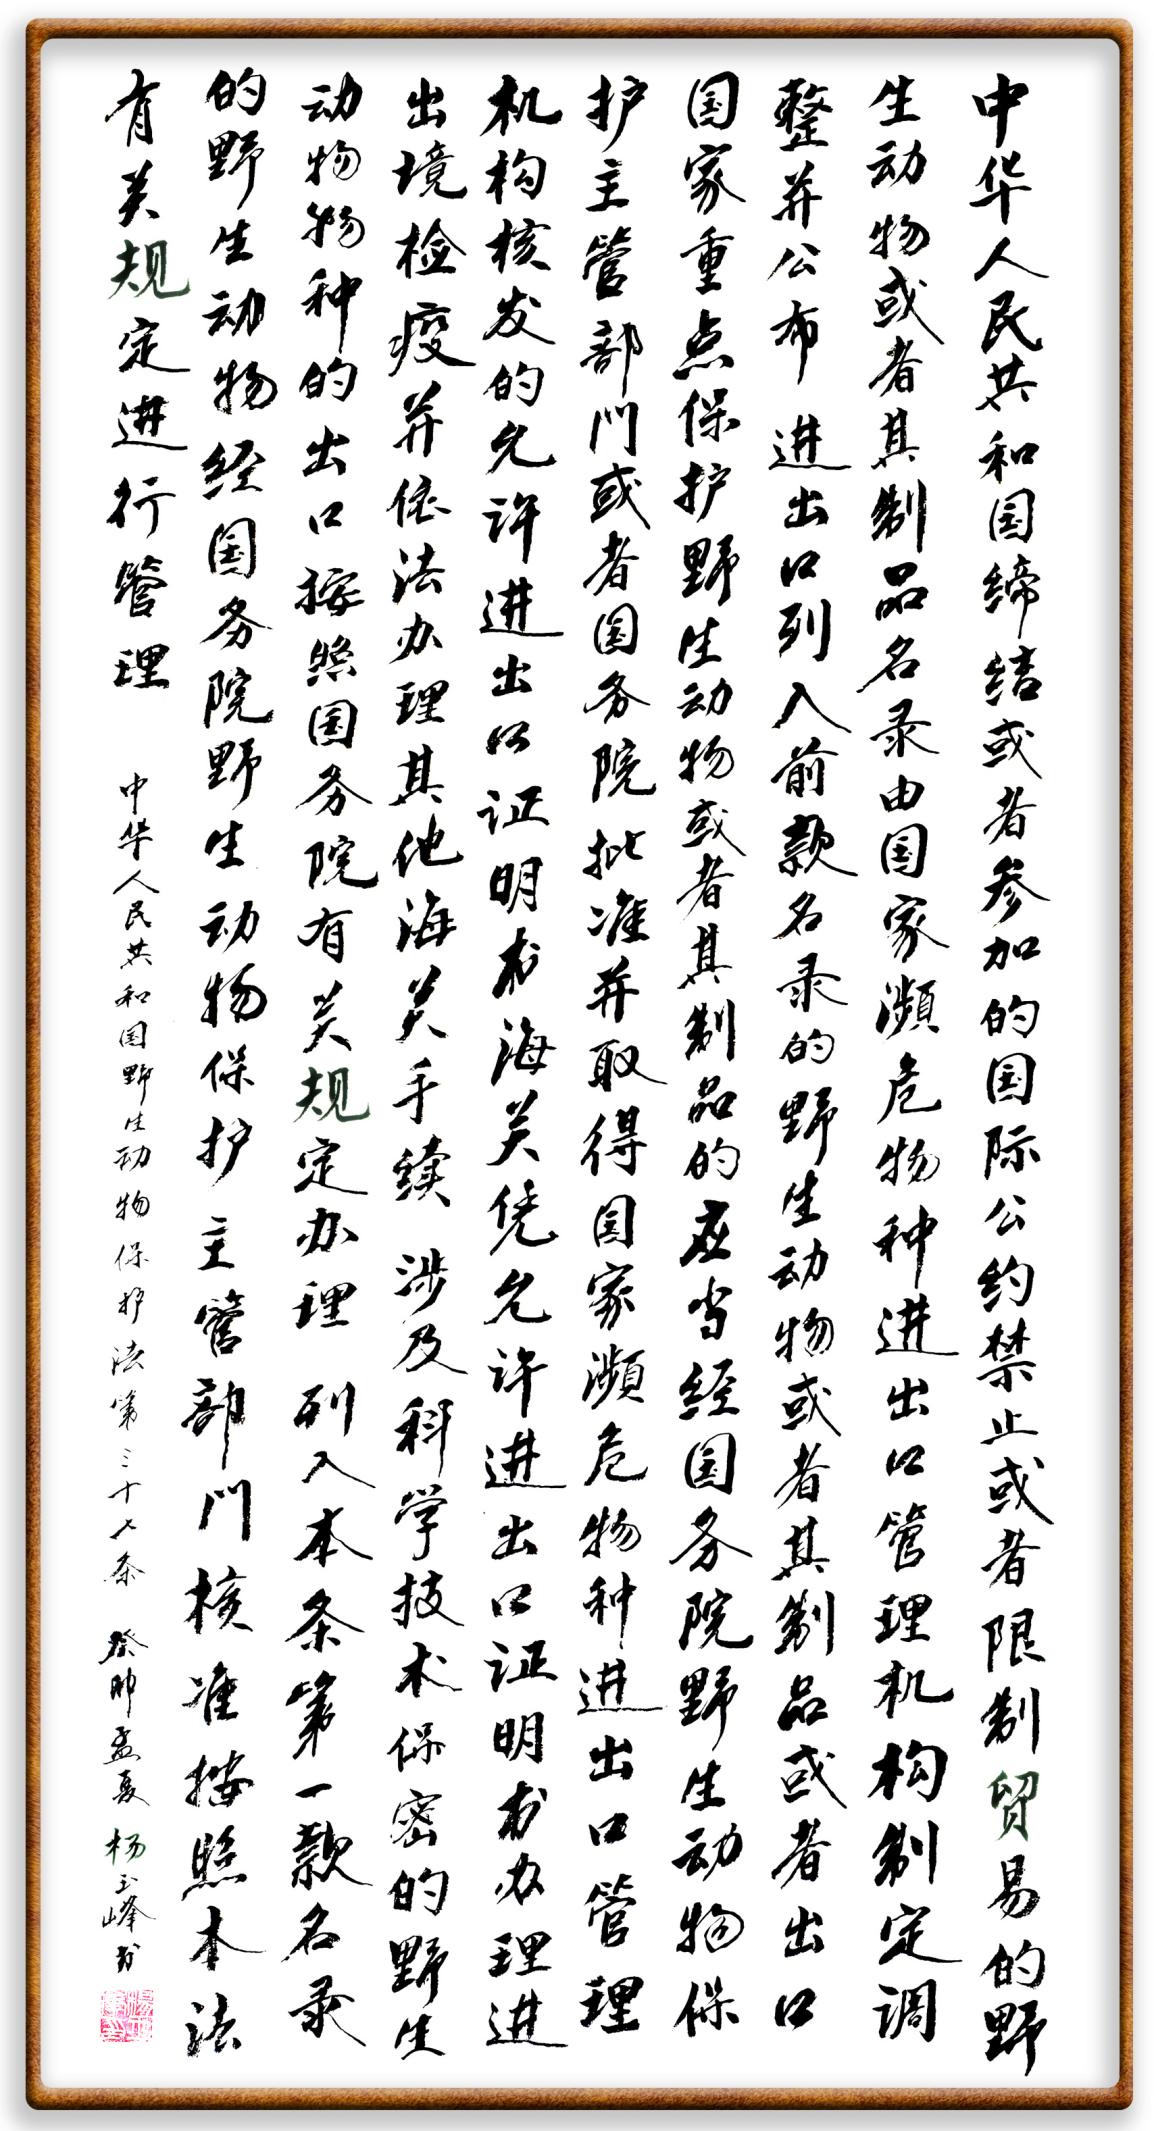 中华人民共和国缔结或者参加的国际公约禁止或者限制贸易的野
生动物或者其制品名录由国家濒危物种进出口管理机构制定调
整并公布 进出口列入前款名录的野生动物或者其制品或者出口
国家重点保护野生动物或者其制品的应当经国务院野生动物保
护主管部门或者国务院批准并取得国家濒危物种进出口管理
机构核发的允许进出口证明书海关凭允许进出口证明书办理进
出境检疫并依法办理其他海关手续 涉及科学技术保密的野生
动物物种的出口按照国务院有关规定办理 列入本条第一款名录
的野生动物经国务院野生动物保护主管部门核准按照本法
有关规定进行管理
中华人民共和国野生动物保护法第三十七条 癸卯孟夏 杨玉峰书